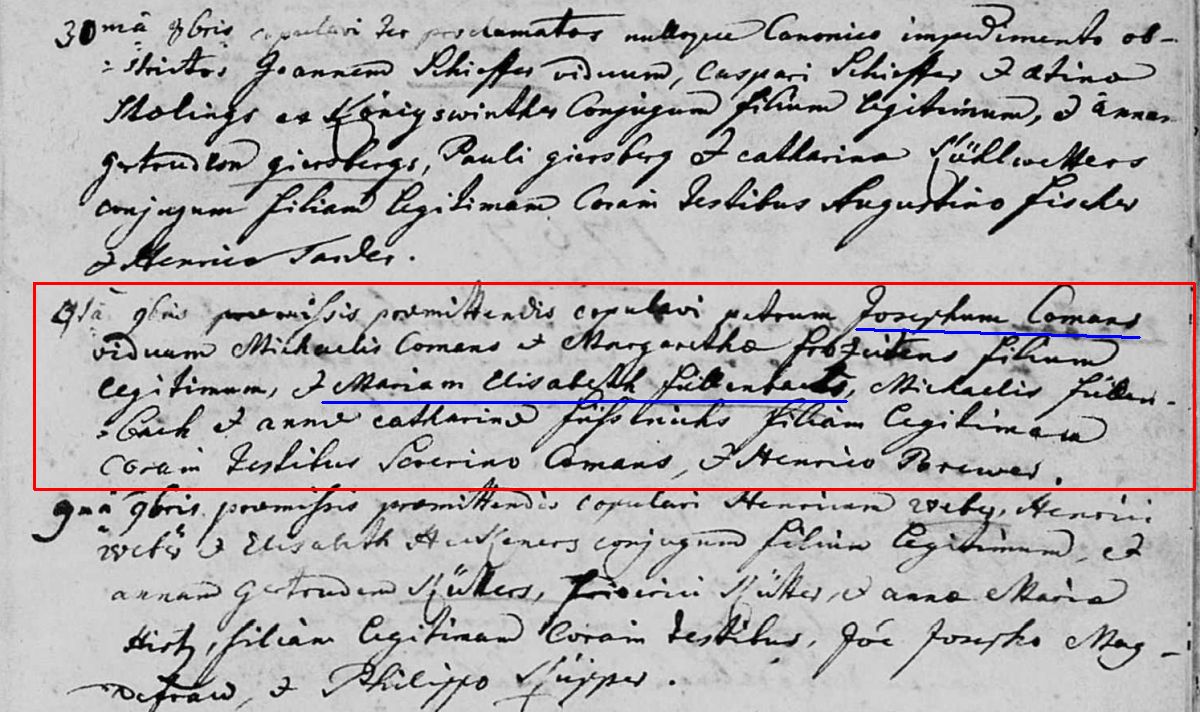 30mâ 8bris copulavi ter proclamatos nulloque Canonico impedimento ob-
-strictos Joannem Schieffer viduum, Caspari Schieffer & 
Stolings ex Königswinther Conjugum filium legitimum, & annam
gertrudem giersbergs, Pauli giersberg & catharina Küllwetters
conjugum filiam legitimam Coram testibus Augustino Fischer
& Henrico Tander.
9bris praemissis praemittendis copulavi petrum Josephum Comans
viduum Michaelis Comans & Margaretha filium
legitimum, & Mariam Elisabeth füllenbachs, Michaelis füllen-
-bach & anna catharina filiam legitimam
coram testibus Severino Comans, & Henrico
9nâ 9bris praemissis praemittendis copulavi Henricum weber, Henrici
weber & Elisabeth conjugum filium legitimum, &
annam gertrudem Küllers, friderici & anna Maria
filiam legitimam Coram testibus, Joe Josepho Mag-
& Philippo Küpper.